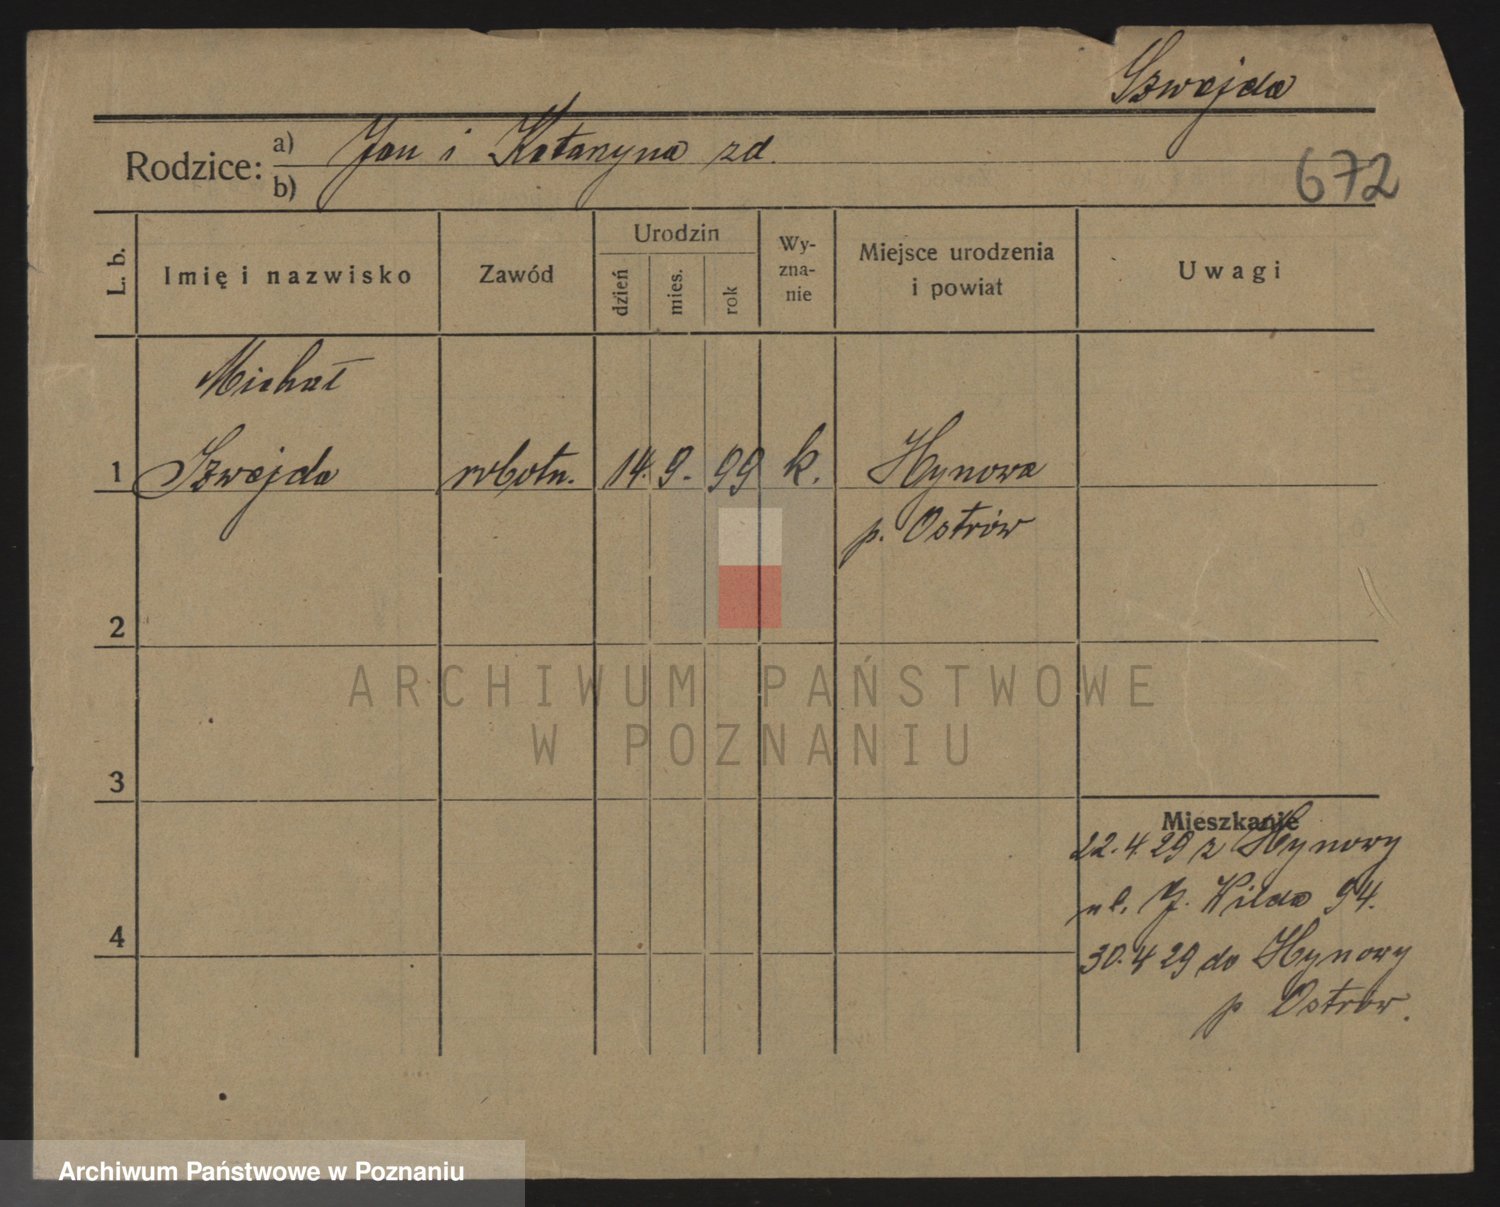 Szwajda
Rodzice: a) Jan i Katarzyna zd.
b)
672
L. b.
Imię i nazwisko
Zawód
Urodzin
dzień
mies.
rok
Wy-
zna-
nie
Miejsce urodzenia
i powiat
Uwagi
Michał
1 Szwajda robotn. 14. 9. 99 k. Hynowa
p. Ostrów
2
3
4
Mieszkanie
22. 4 29 z Hynowy
ul. G. Wilda 94.
30. 4 29 do Hynowy
p Ostrów.
ARCHIWUM PAŃSTWOWE
W POZNANIU
Archiwum Państwowe w Poznaniu